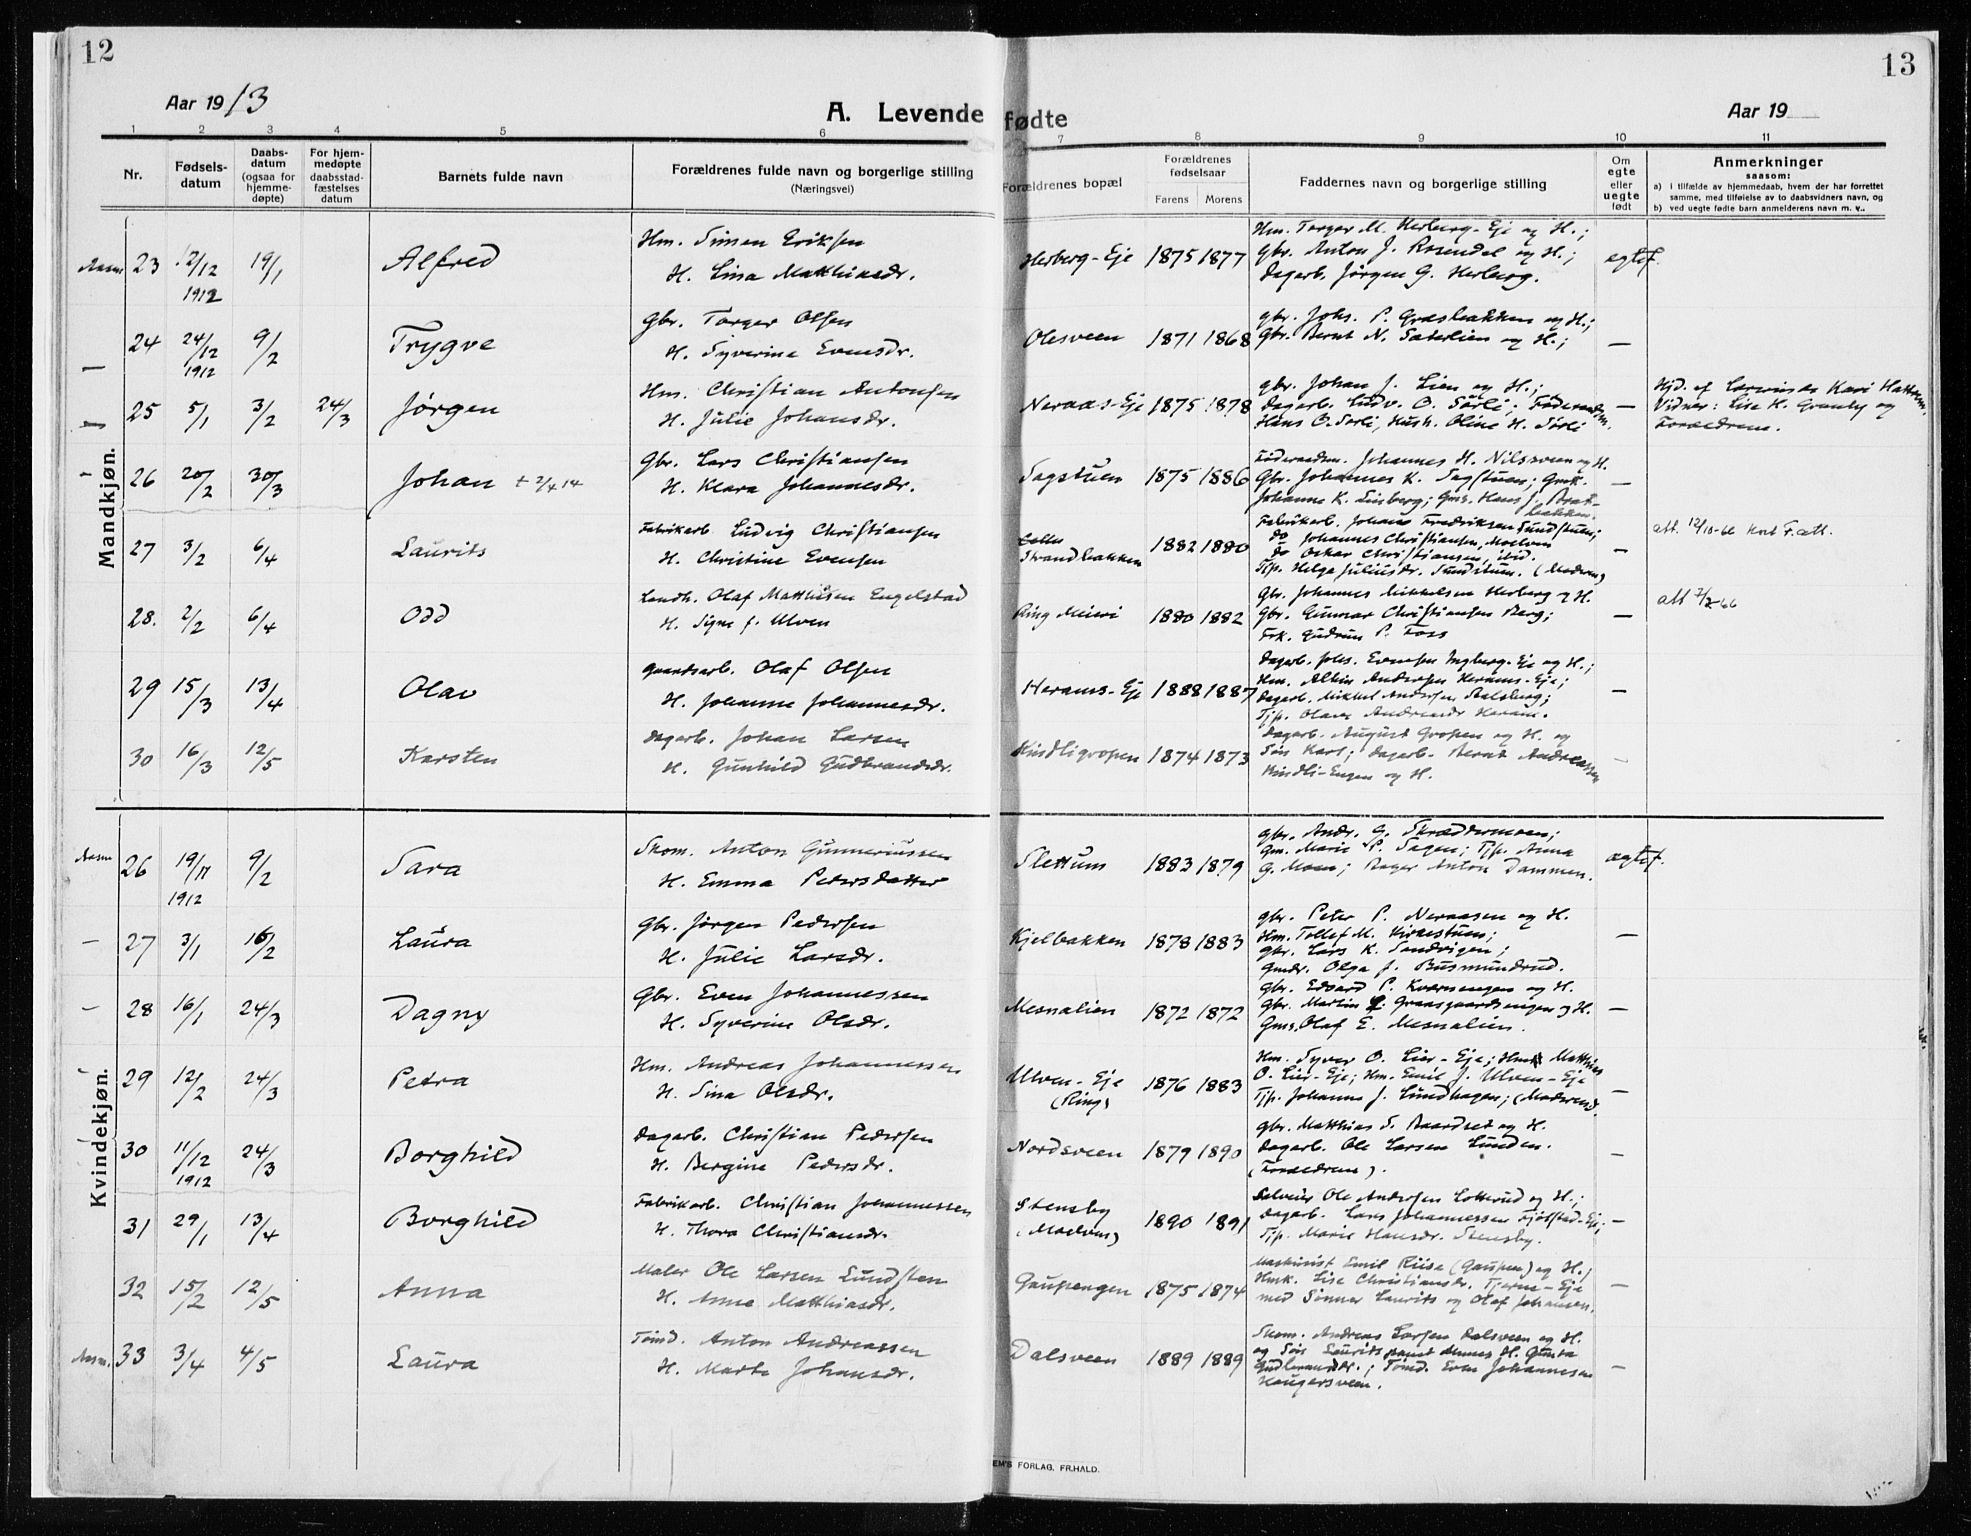 12
13
Aar 1913
A. Levende fødte
Aar 19
1 2 3 4 5 6 7 8 9 10 11
Nr.
Fødsels-
datum
Daabs-
datum
(ogsaa for
hjemme-
døpte)
For hjem-
medøpte
daabsstad-
fæstelses
datum
Barnets fulde navn
Forældrenes fulde navn og borgerlige stilling
(Næringsvei)
Forældrenes bopæl
Forældrenes
fødselsaar
Farens Morens
Faddernes navn og borgerlige stilling
Om
egte
eller
uegte
født
Anmerkninger
saasom:
a) i tilfælde av hjemmedaab, hvem der har forrettet
samme, med tilføielse av to daabsvidners navn, og
b) ved uegte fødte barn anmelderens navn m. v..
Mandkjøn.
23 12/12 1912 19/1 Alfred
Hm. Simen Eriksen
H. Lina Matthiasdr.
Herberg-Eje 1875 1877
Hm. Torger M. Herberg-Eje og H.;
Gbr. Anton J. Rosendal og H.;
Dagarb. Jørgen G. Herberg.
egtef.
24 24/12 1912 9/2 Trygve
Gbr. Torger Olsen
H. Syverine Evensdr.
Olesveen 1871 1868
gbr. Johs. P. Græsbakken og H.;
Gbr. Bernt N. Sæterlien og H.;
—
25 5/1 3/2 24/3 Jørgen
Hm. Christian Antonsen
H. Julie Johansdr.
Neraas-Eje 1875 1878
gbr. Johan J. Lien og H.;
Dagarb. Ludv. O. Sørli; Føderaadsm.
Hans O. Sørli, Hush. Oline H. Sørli
—
Hjd. af Lærerinde Kari Hattrem.
Vidner: Lise K. Granly og
Forældrene.
26 20/2 30/3 Johan + 2/4 14
Gbr. Lars Christiansen
H. Klara Johannesdr.
Sagstuen 1875 1886
Føderaadsm. Johannes H. Nilssveen og H.
Gbr. Johannes K. Sagstuen; Gmk.
Johanne K. Linberg; Gms. Hans J. Brat-
bakken.
—
27 3/2 6/4 Laurits
Fabrikarb. Ludvig Christiansen
H. Christine Evensen
Strandbakken 1882 1880
Fabrikarb. Johan Fredriksen Sundstuen;
do Johannes Christiansen, Moelven
do Oskar Christiansen, ibid.
Tjp. Helga Juliusdr. Sundstuen. (Moderen)
—
att. 12/10-62
28. 2/2 6/4 Odd
Landh. Olaf Matthisen Engelstad
H. Signe f. Ulven
Ring Meieri 1880 1882
Gbr. Johannes Mikkelsen Herberg og H.
Gbr. Gunnar Christiansen Berg;
Frk. Gudrun P. Foss
—
att 7/2-66
29 15/3 13/4 Olav
Gaardsarb. Olaf Olsen
H. Johanne Johannesdr.
Herams-Eje 1888 1887
Dagarb. Johs. Evensen Ingberg-Eje og H.;
Hm. Albin Andersen Herams-Eje;
Dagarb. Mikkel Andersen Stalsberg;
Tjp. Olava Andreasdr Heram.
—
30 16/3 12/5 Karsten
Dagarb. Johan Larsen
H. Gunhild Gudbrandsdr.
Kindligropen 1874 1873
Dagarb. August Gropen og H. og
Søn Karl; Dagarb. Bernt Andreassen
Kindli-Engen og H.
—
Kvindekjøn.
26 19/11 1912 9/2 Sara
Skom. Anton Gunneriussen
H. Emma Pedersdatter
Slettum 1883 1879
gbr. Andr. G. Skræddermoen;
Gm. Marie P. Sagen; Tjp. Anna
G. Moen; Bager Anton Dammen.
egtef.
27 3/1 16/2 Laura
Gbr. Jørgen Pedersen
H. Julie Larsdr.
Kjelbakken 1878 1883
gbr. Peter P. Neraasen og H.
Hm. Tollef M. Kirkestuen;
gbr. Lars K. Sandvigen;
Gmdr. Olga J. Busmundrud.
—
28 16/1 24/3 Dagny
Gbr. Even Johannessen
H. Syverine Olsdr.
Mesnalien 1872 1872
Gbr. Edvard P. Kværnengen og H.
Gbr. Martin Graasgaardsengen og H.
Gms. Olaf E. Mesnalien.
—
29 12/2 24/3 Petra
Hm. Andreas Johannessen
H. Sina Olsdr.
Ulven-Eje 1876 1883
(Ring)
Hm. Syver O. Lier-Eje; Matthias
O. Lier-Eje; Hm. Emil J. Ulven-Eje
Tjp. Johanne J. Lundhagen; (Moderen).
—
30 11/12 1912 24/3 Borghild
Dagarb. Christian Pedersen
H. Bergine Pedersdr.
Nordsveen 1879 1890
Gbr. Matthias S. Baardset og H.
Dagarb. Ole Larsen Lunden.
(Forældrene).
—
31 29/1 13/4 Borghild
Fabrikarb. Christian Johannessen
H. Thora Christiansdr.
Stensby 1890 1891
(Moelven)
Selveier Ole Andersen Lotterud og H.;
Dagarb. Lars Johannessen Fjølstad-Eje;
Tjp. Marie Hansdr. Stensby.
—
32 15/2 12/5 Anna
Maler Ole Larsen Lundsten
H. Anne Matthiasdr.
Gaupengen 1875 1874
Maskinist Emil Riise (Gaupen) og H.;
Hmk. Lise Christiansdr. Tjerne-Eje
med Sønner Laurits og Olaf Johansen.
—
33 3/4 4/5 Laura
Tømd. Anton Andreassen
H. Marte Johansdr.
Dalsveen 1889 1889
Skom. Andreas Larsen Dalsveen og H.
og Søn Laurits samt dennes H. Gunda
Gudbrandsdr.; Tømd. Even Johannesen
Haugersveen.
—
EM'S FORLAG. FR.HALD.